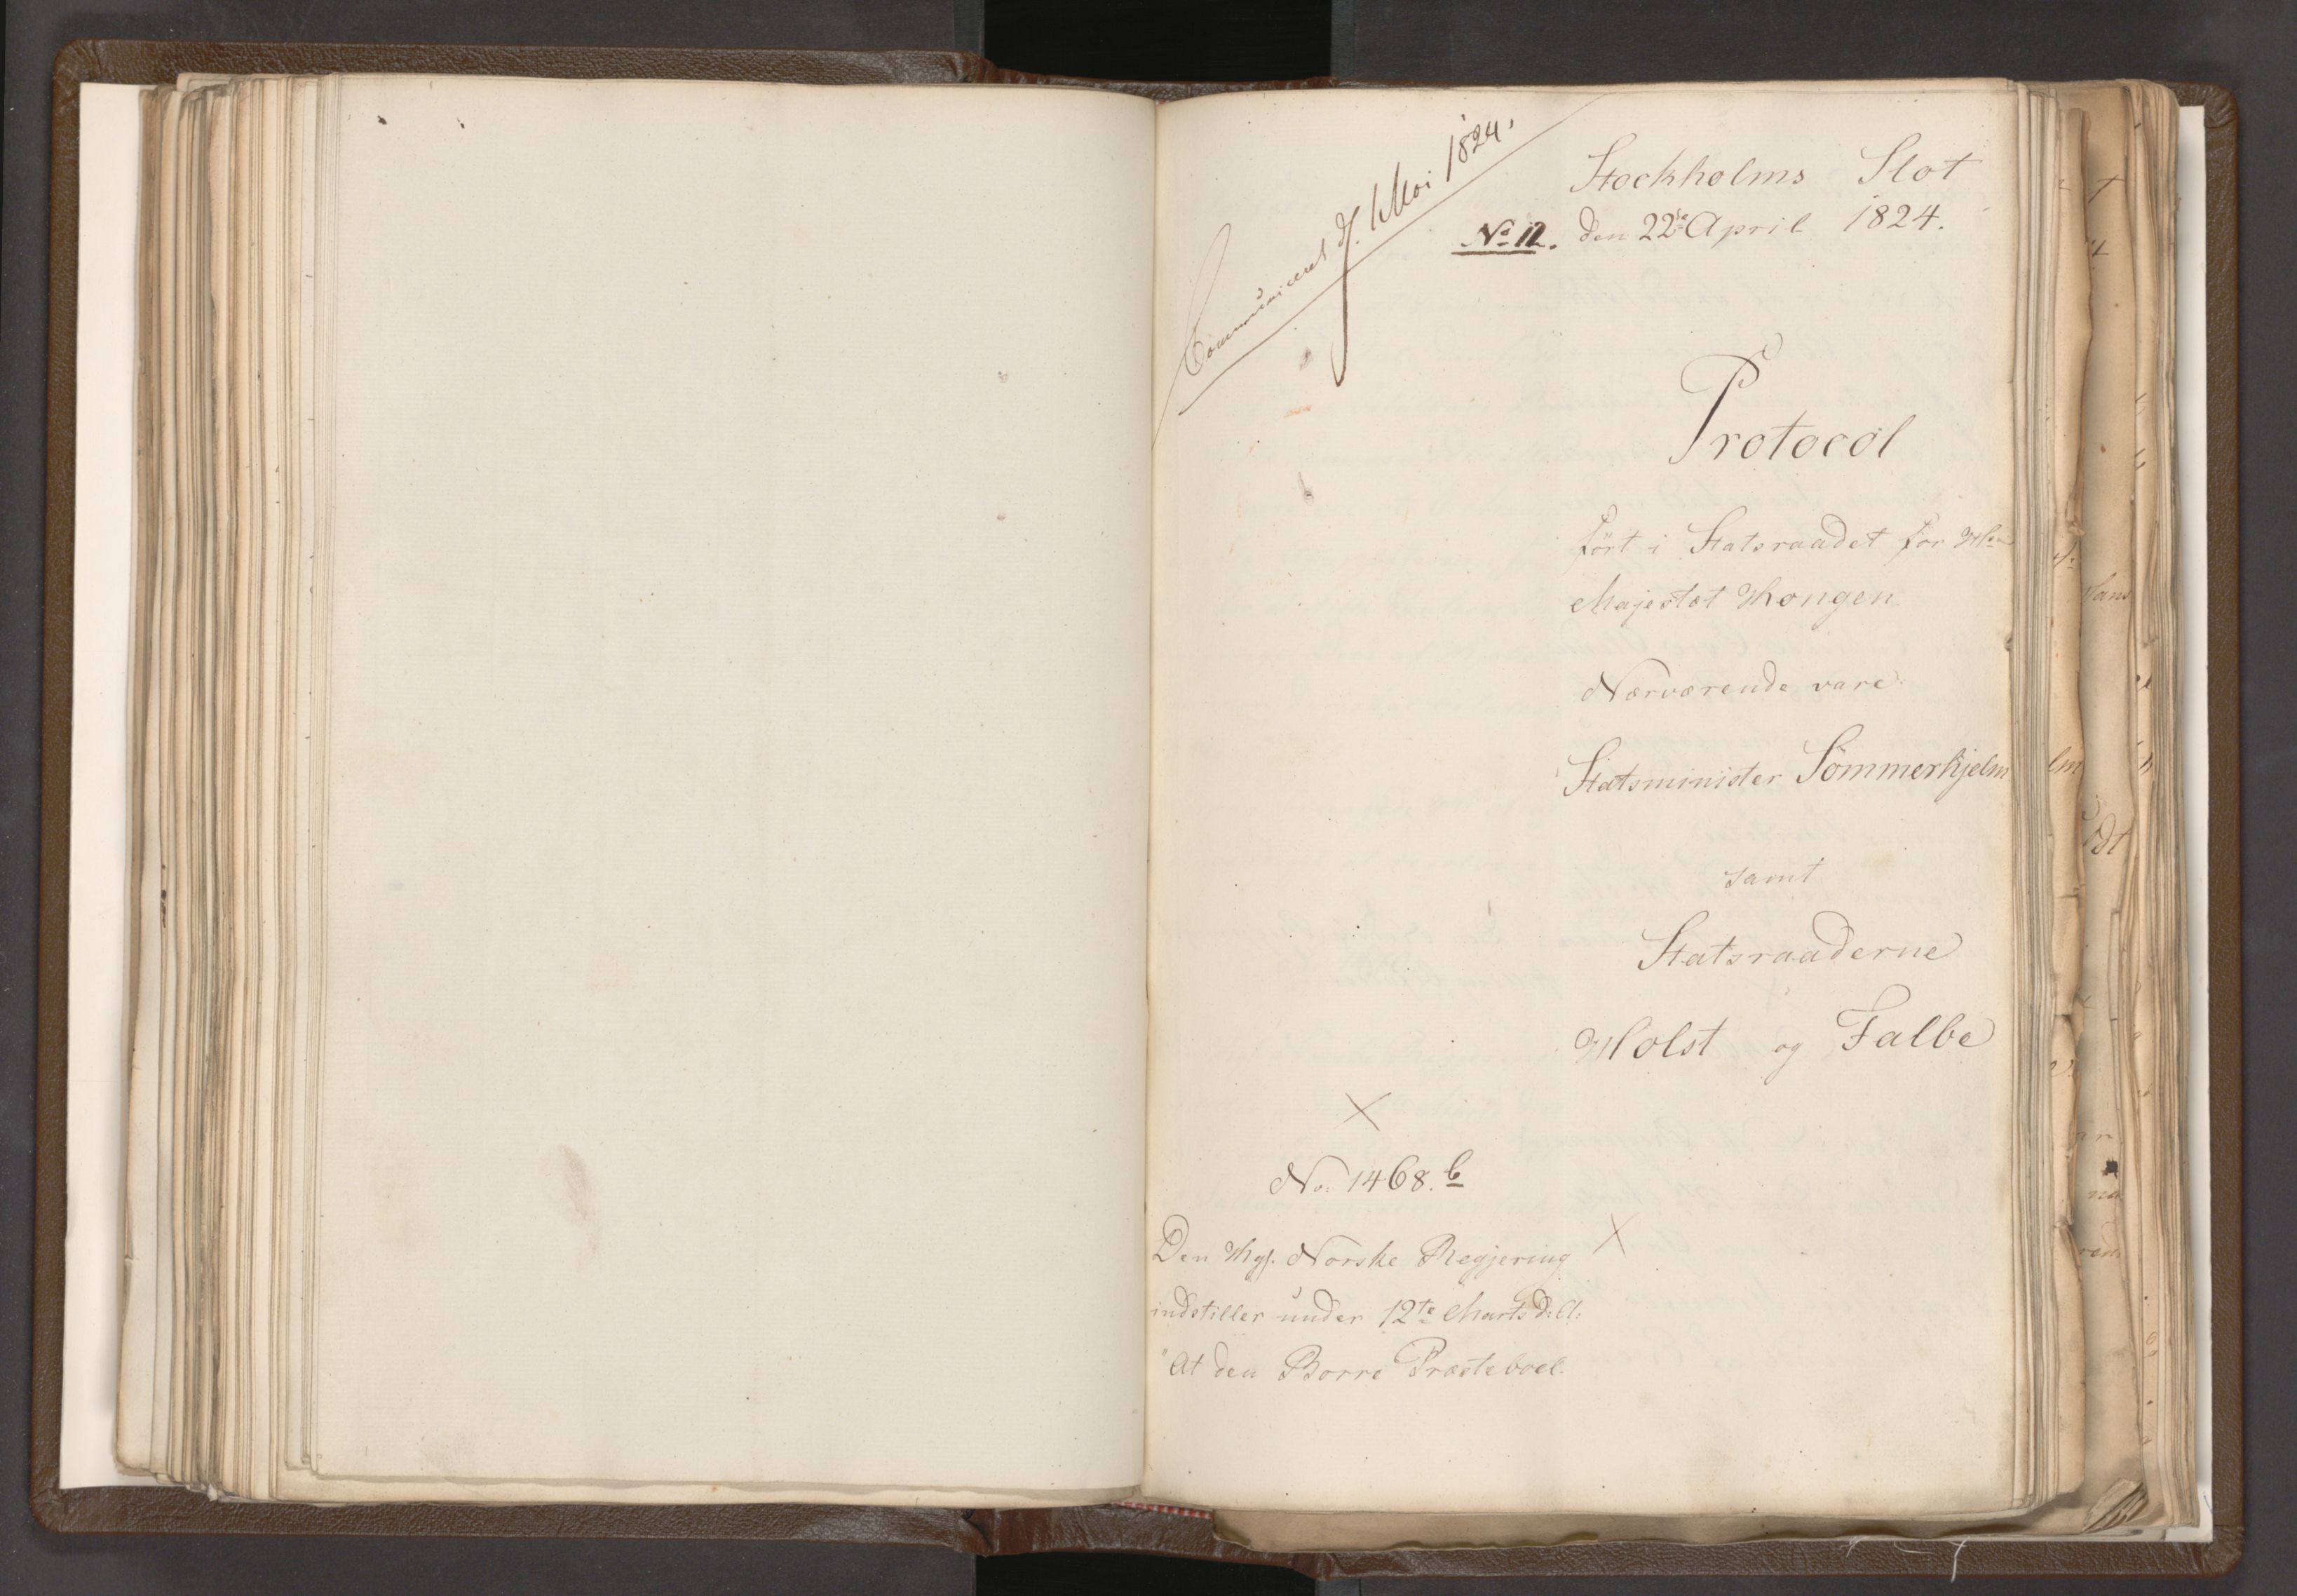 Communiceret d. 1 Mai 1824.
Stockholms Slot
No 12. den 22de April 1824.
Protocol
fört i Statsraadet for Hs
Majestæt Kongen.
Nærværende vare
Statsminister Sömmerhjelm
samt
Statsraaderne
Holst og Falbe
No: 1468. b
Den Kgl. Norske Regjering
indstiller under 12te Marts d: A:
"At den Borre Præsteboel